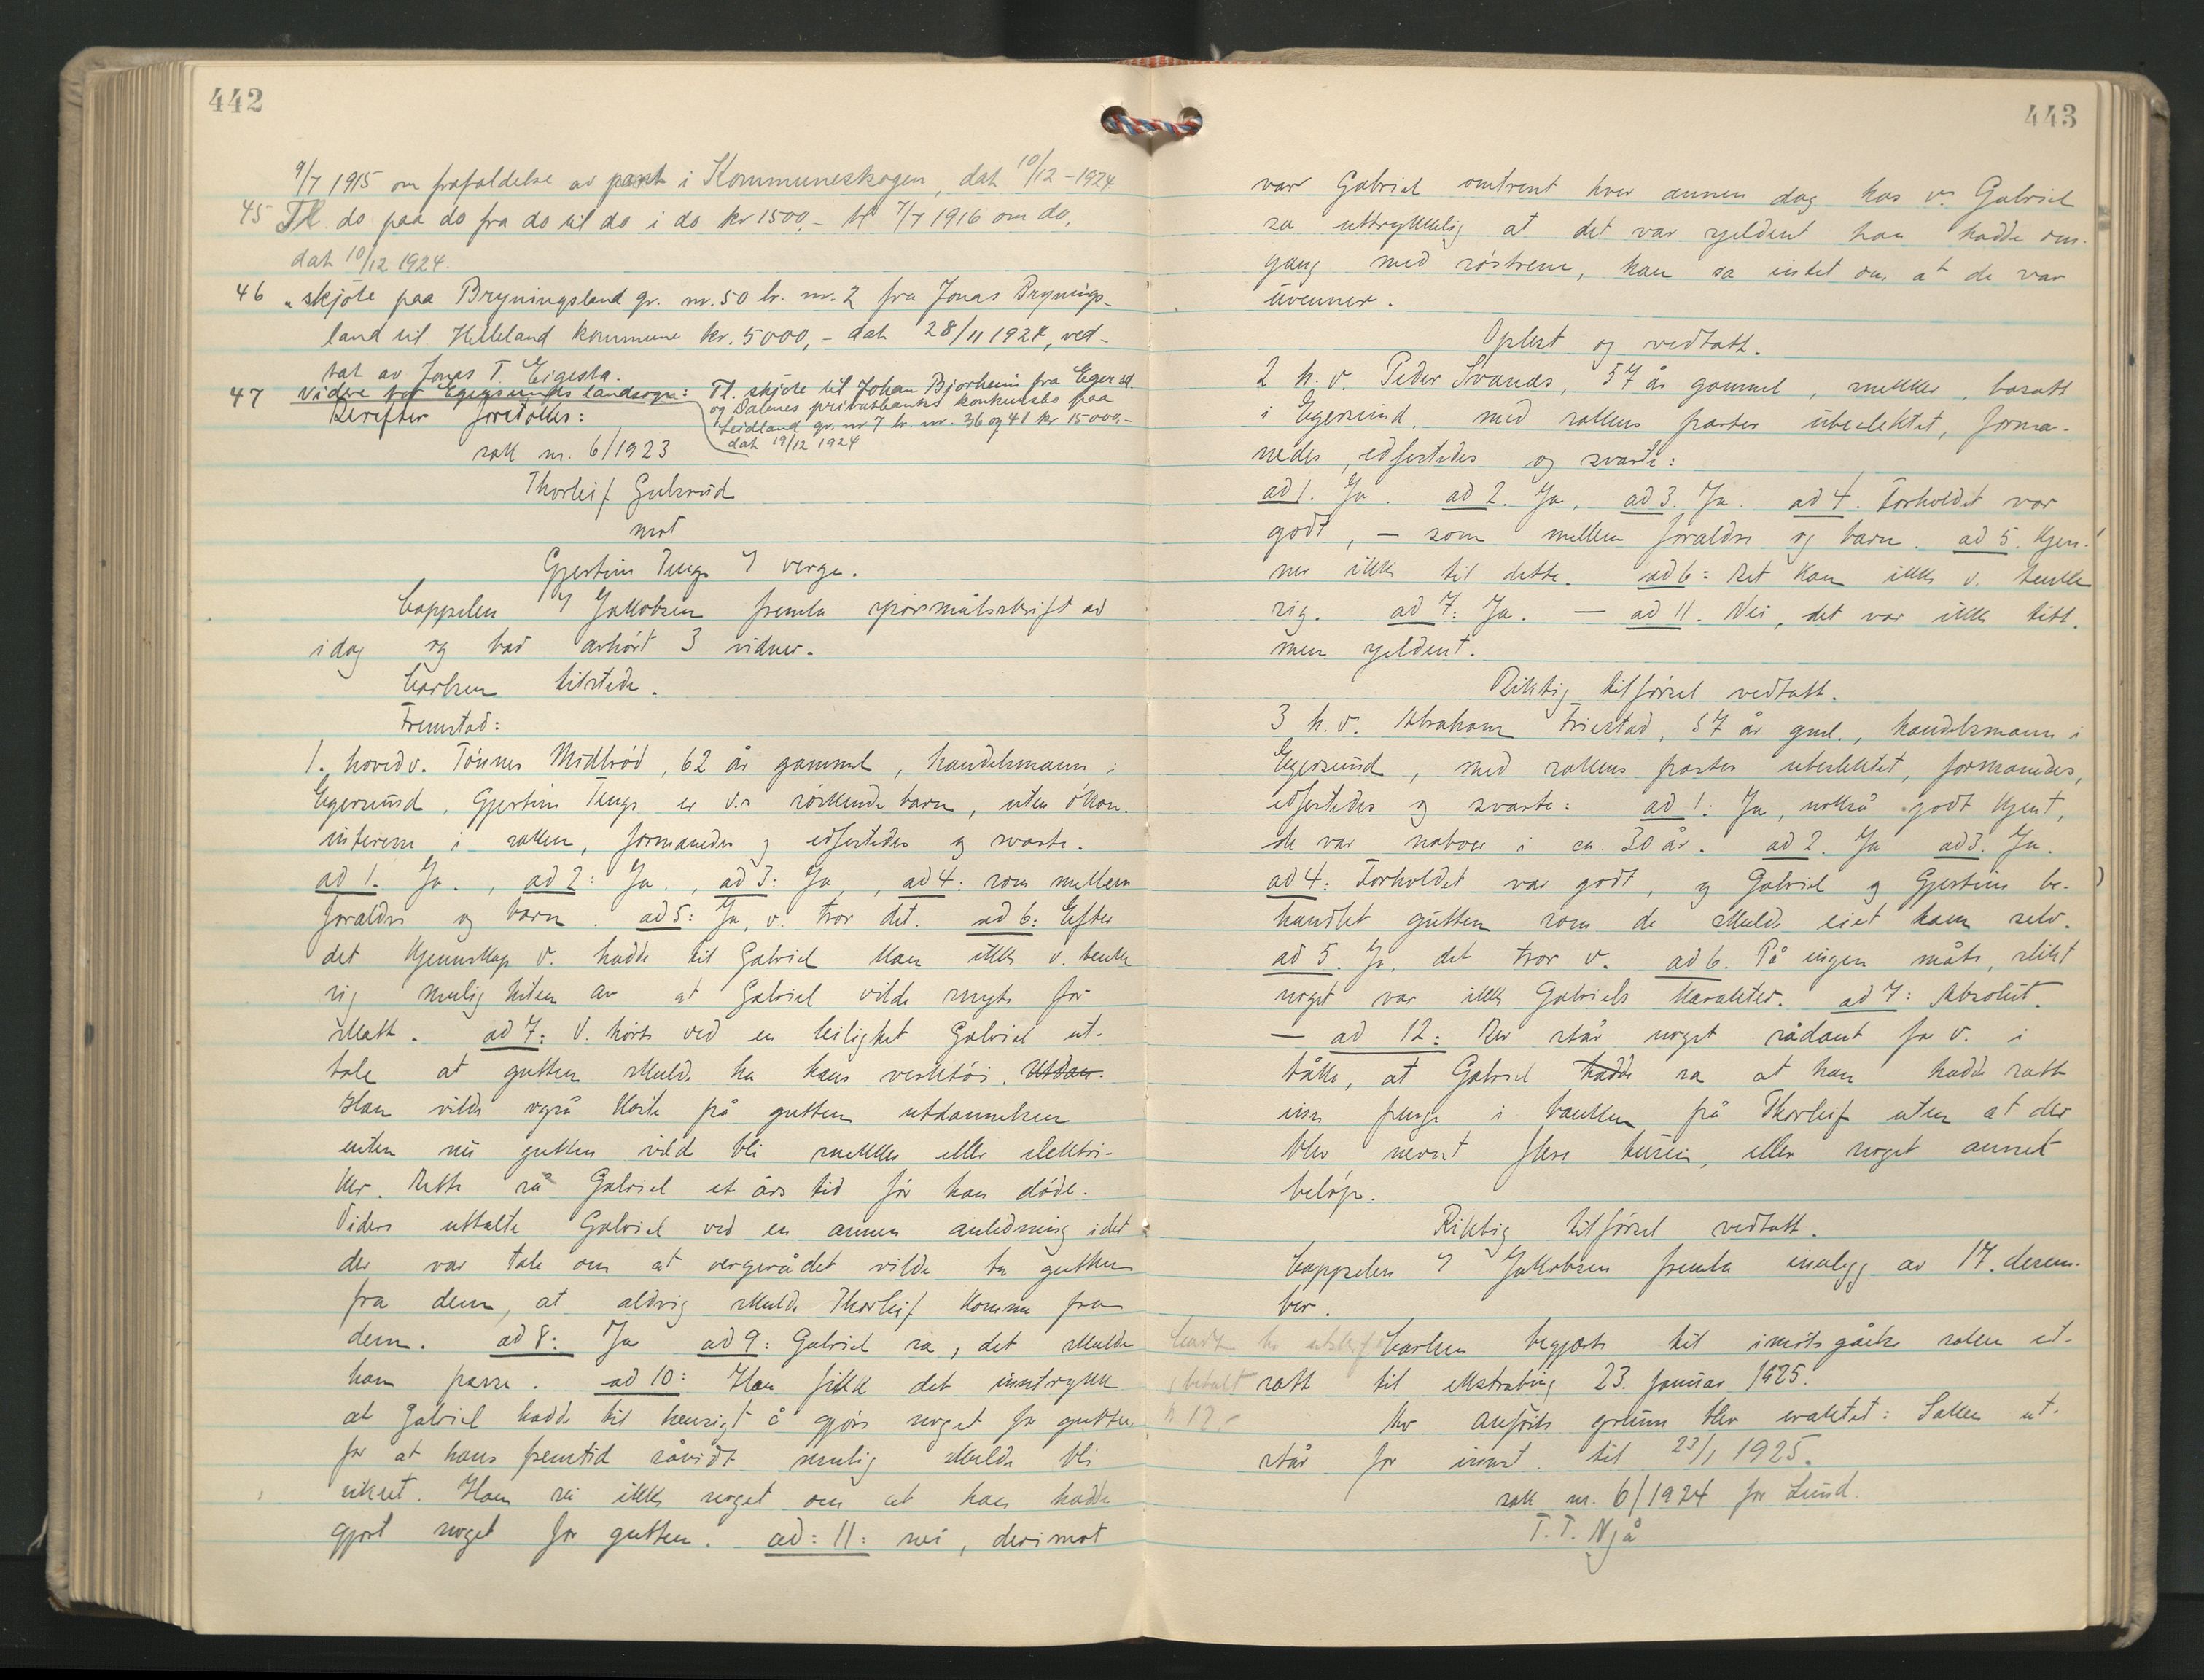 442
9/7 1915 om frafaldelse av part i Kommuneskogen, dat 10/12 - 1924
45 Tl. do paa do fra do til do i do kr 1500,- tl 7/7 1916 om do,
dat 10/12 1924.
46 " skjöte paa Bryningsland gr. nr. 50 br. nr. 2 fra Jonas Brynings-
land til Helleland kommune kr. 5000,- dat 28/11 1924, ved-
tat av Jonas T. Eigesta.
47 Videre for Egersunds landsogn: Tl. skjöte til Johan Bjorheim fra Egersd.
og Dalenes privatbanks konkursbo paa
Leidland gr. nr 7 br. nr. 36 og 41 kr 15000,-
dat 19/12 1924
Derefter foretokes:
sak nr. 6/1923
Thorleif Gulsrud
mot
Gjertine Tengs & verge.
Cappelen & Jakobsen fremla spörsmålsskrift av
idag og bad avhört 3 vidner.
Carlsen tilstede.
Fremstod:
1. hovedv. Tönnes Midbröd, 62 år gammel, handelsmann i
Egersund, Gjertine Tengs er v.s söskendebarn, uten ökon.
interesse i saken, formanedes og edfestedes og svarte.
ad 1. Ja., ad 2: Ja., ad 3: Ja, , ad 4: som mellem
foraldre og barn. ad 5: Ja, v. tror det. ad 6: Efter
det kjennskap v. hadde til Gabriel kan ikke v. tenke
sig muligheten av at Gabriel vilde snyte for
skatt. ad 7: V. hörte ved en leilighet Gabriel ut-
tale at gutten skulde ha hans verktöi.
Han vilde også koste på gutten utdannelsen
enten nu gutten vilde bli mekker eller elektri-
ker. Dette sa Gabriel et års tid för han döde.
Videre uttalte Gabriel ved en annen anledning idet
der var tale om at vergerådet vilde ta gutten
fra dem, at aldrig skulde Thorleif komme fra
dem. ad 8: Ja ad 9: Gabriel sa, det skulde
han passe. ad 10: Han fikk det inntrykk
at Gabriel hadde til hensigt å gjöre noget for gutten
for at hans fremtid såvidt mulig skulde bli
sikret. Han sa ikke noget om at han hadde
gjort noget for gutten. ad: 11: nei, derimot
443
var Gabriel omtrent hver annen dag hos v. Gabriel
sa uttrykkelig at det var sjeldent han hadde om-
gang med söstrene, han sa intet om at de var
uvenner.
Oplest og vedtatt.
2 h. v. Peder Svanes, 57 år gammel, mekker, bosatt
i Egersund, med sakens parter ubeslektet, forma-
nedes, edfestedes og svarte:
ad 1. Ja. ad 2. Ja, ad 3. Ja. ad 4. Forholdet var
godt, - som mellem foraldre og barn. ad 5. Kjen-
ner ikke til dette. ad 6: Det kan ikke v. tenke
sig. ad 7: Ja. - ad 11. Nei, det var ikke titt.
men sjeldent.
Riktig tilförsel vedtatt.
3 h. v. Abraham Friestad, 57 år gml., handelsmann i
Egersund, med sakens parter ubeslektet, formanedes,
edfestedes og svarte: ad 1: Ja, nokså godt kjent,
de var naboer i ca. 30 år. ad 2. Ja ad 3. Ja.
ad 4: Forholdet var godt, og Gabriel og Gjertine be-
handlet gutten som de skulde eiet ham selv.
ad 5. Ja, det tror v. ad 6. På ingen måte, slikt
noget var ikke Gabriels karakter. ad 7: Absolut.
- ad 12: Der står noget sådant for v. i
tåke, at Gabriel hadde sa at han hadde satt
inn penge i banken på Thorleif uten at der
blev nevnt flere tusen, eller noget annet
belöp.
Riktig tilförsel vedtatt.
Cappelen & Jakobsen fremla innlegg av 17. desem-
ber.
Carlsen begjærte til imötegåelse saken ut-
betalt satt til ekstrating 23. januar 1925.
kr 12.- Av anförte grunn blev eraktet: Saken ut-
står for innst. til 23/1 1925.
sak nr. 6/1924 for Lund.
T. T. Njå